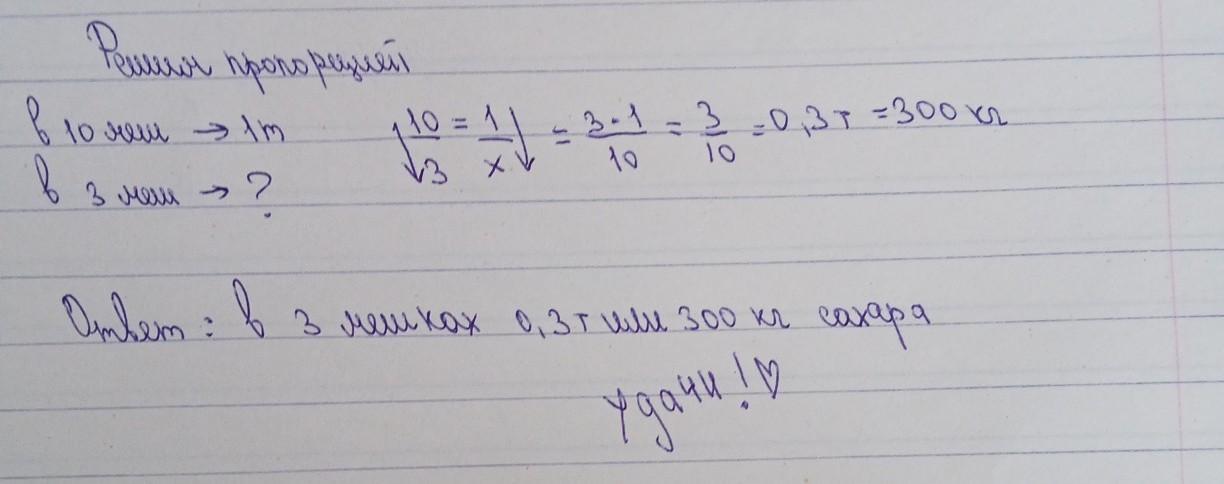 Решим пропорцией
в 10 меш → 1т ↓10/3 = 1/x↓ = 3·1/10 = 3/10 = 0,3т = 300 кг
в 3 меш → ?
Ответ: в 3 мешках 0,3т или 300 кг сахара
удачи!♡